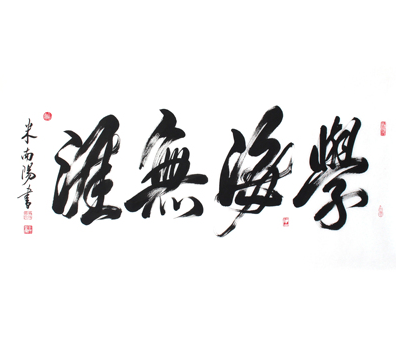 學海無涯
米南陽書